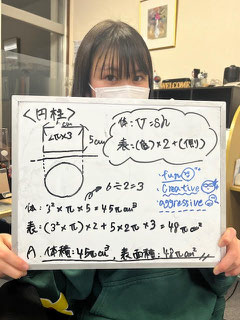 WELCOME
<円柱>
6cm
2π×3
5cm
体:V=Sh
表:(底)×2+(側)
6÷2=3
fun
Creative
aggressive
体:3²×π×5=45πcm³
表:(3²×π)×2+5×2π×3=48πcm²
A. 体積:45πcm³, 表面積:48πcm²